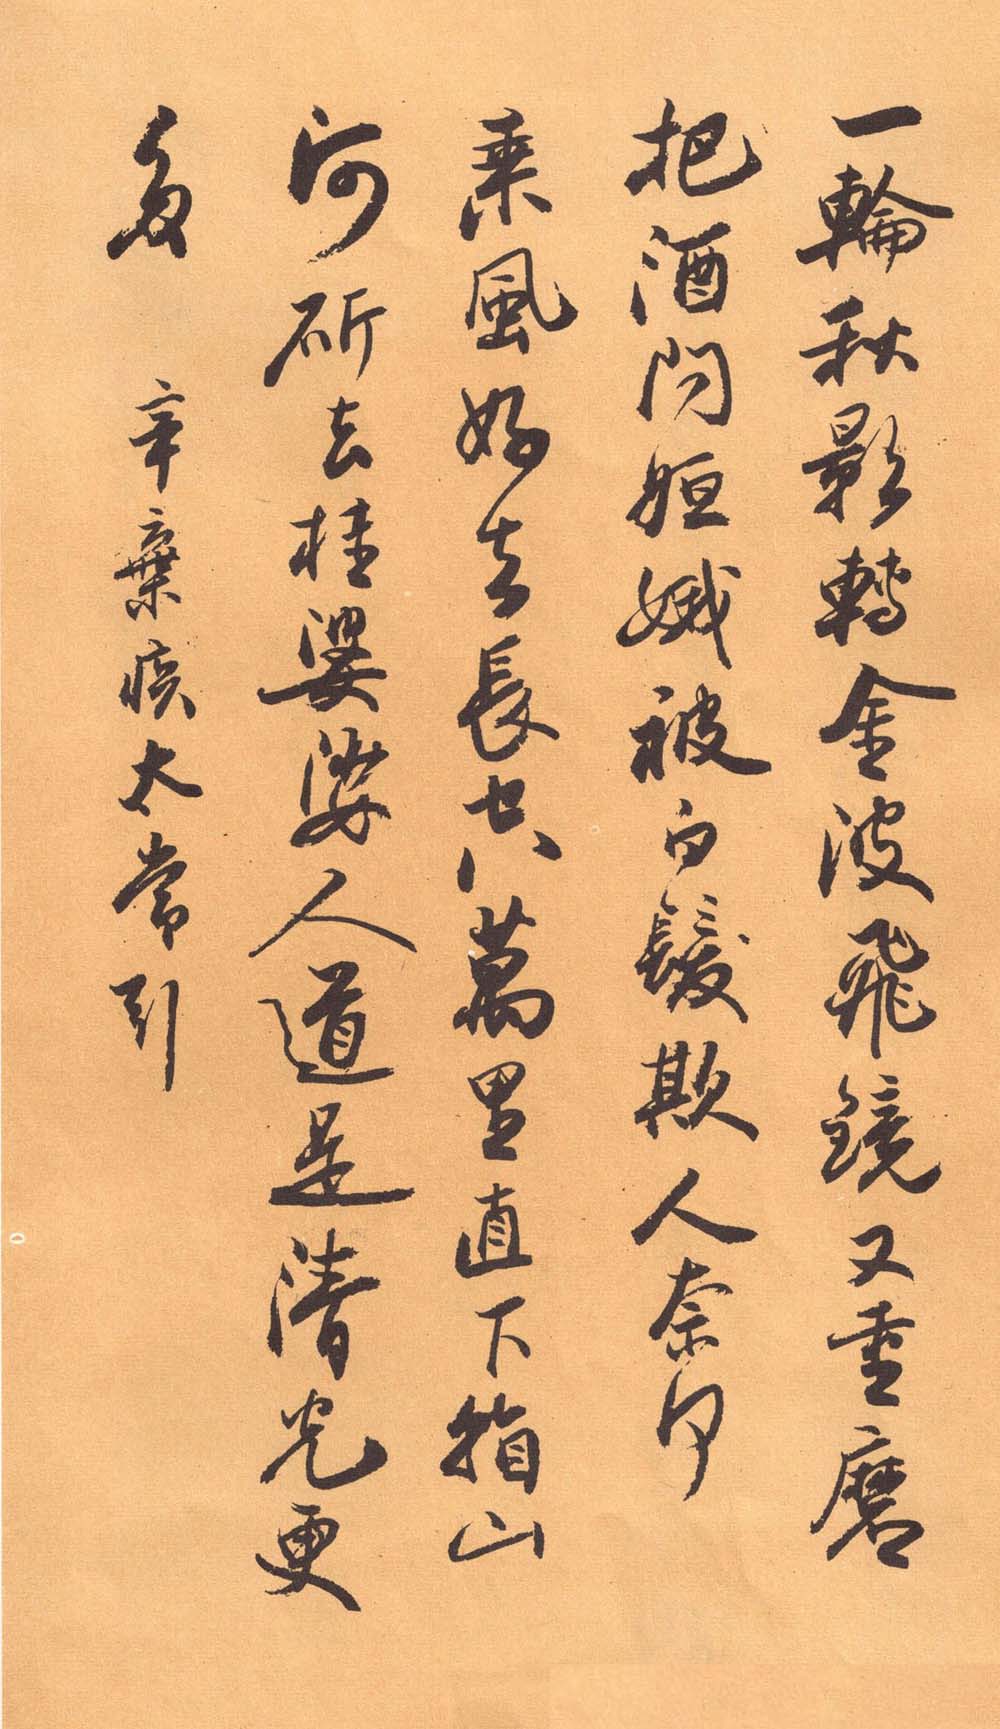 一輪秋影轉金波飛鏡又重磨
把酒問姮娥被白髮欺人奈何
乘風好去長空萬里直下看山
河斫去桂婆娑人道是清光更
多 辛棄疾太常引